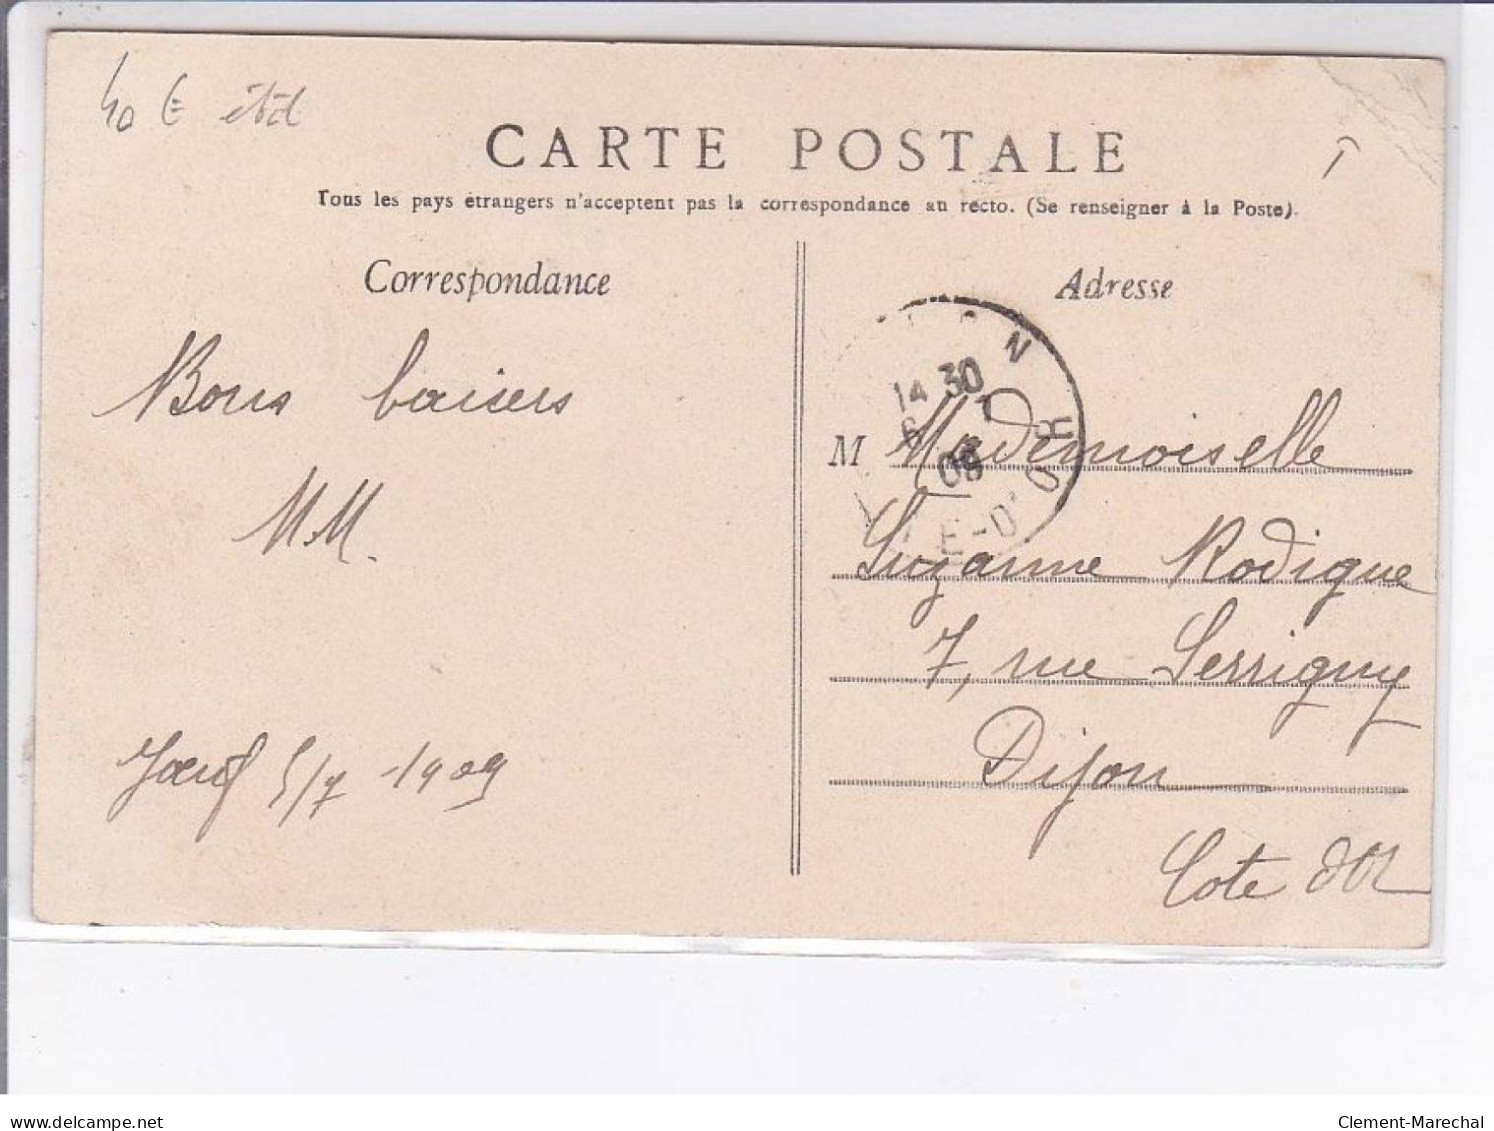 40 €
CARTE POSTALE
Tous les pays étrangers n'acceptent pas la correspondance au recto. (Se renseigner à la Poste).
Correspondance
Bons baisers
MM.
Joeuf 5/7 -1909
Adresse
14 30
6 7
09
E-D'OR
M Mademoiselle
Suzanne Rodigue
7, rue Serrigny
Dijon
Cote d'Or
delcampe.net
Clement-Marechal